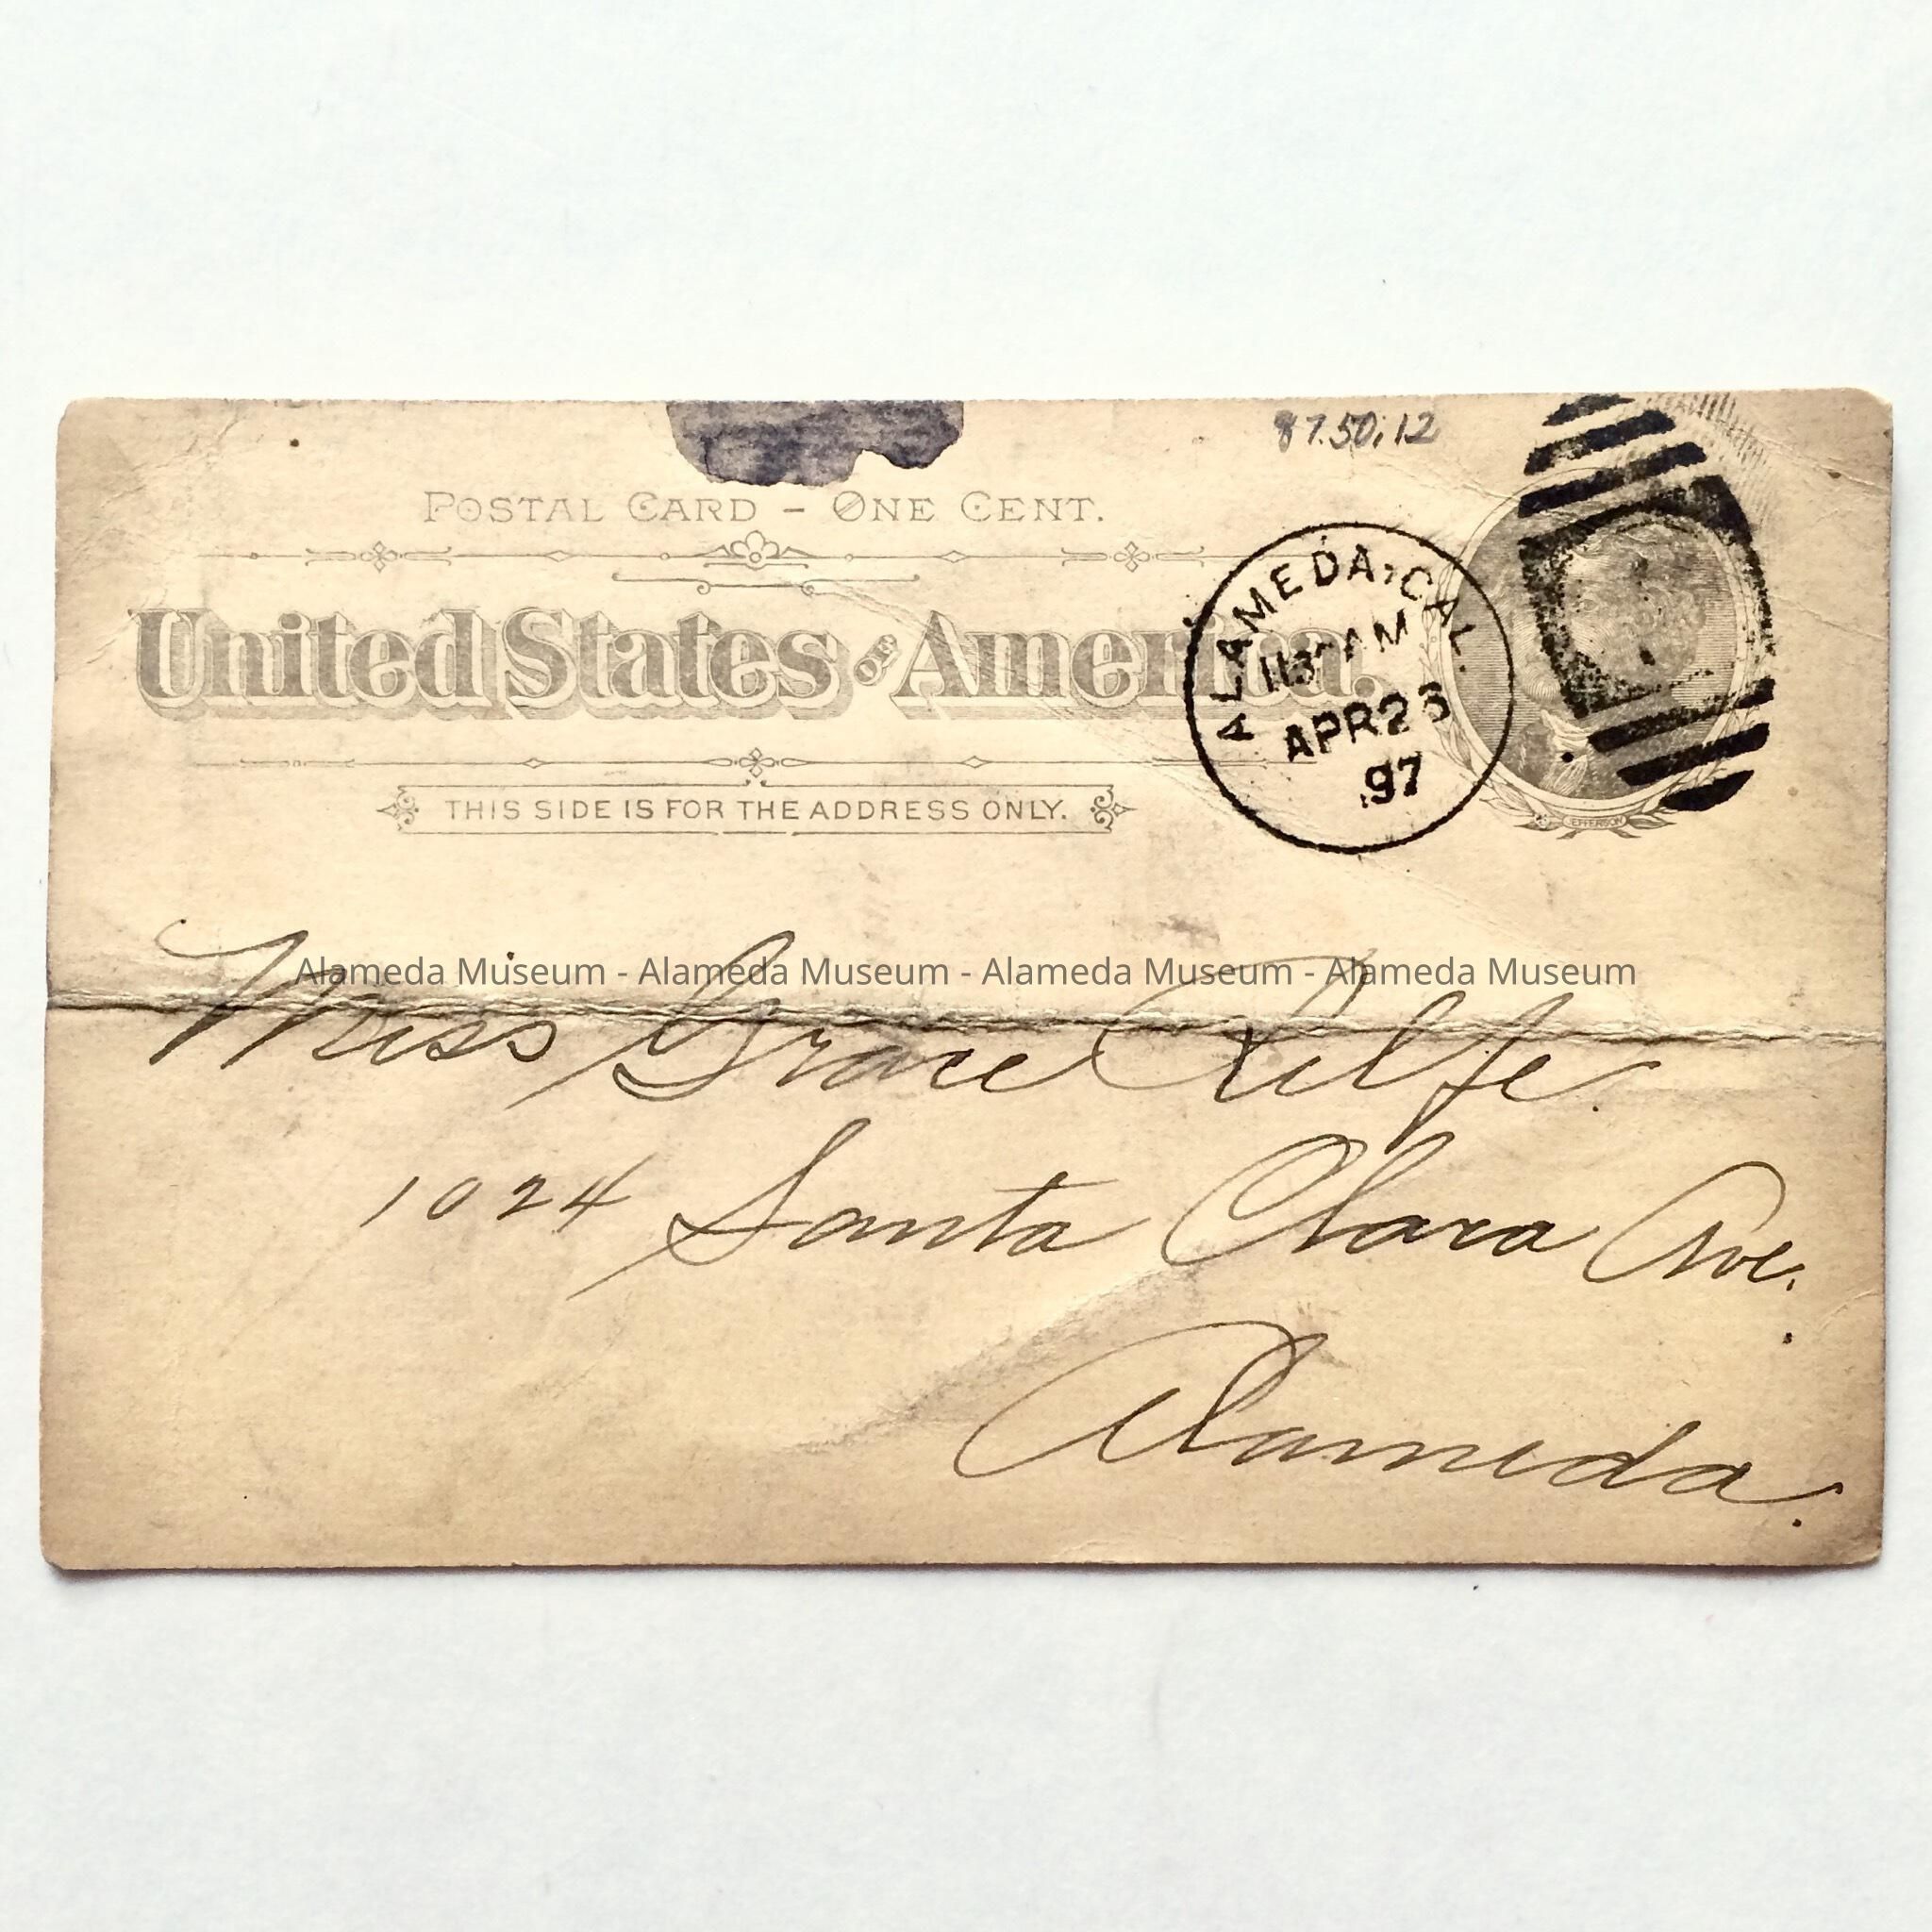 87.50.12
POSTAL CARD – ONE CENT.
United States OF America.
THIS SIDE IS FOR THE ADDRESS ONLY.
ALAMEDA, CAL.
1130 AM
APR 26
97
JEFFERSON
Alameda Museum - Alameda Museum - Alameda Museum - Alameda Museum
Miss Grace
1024 Santa Clara Ave.
Alameda.